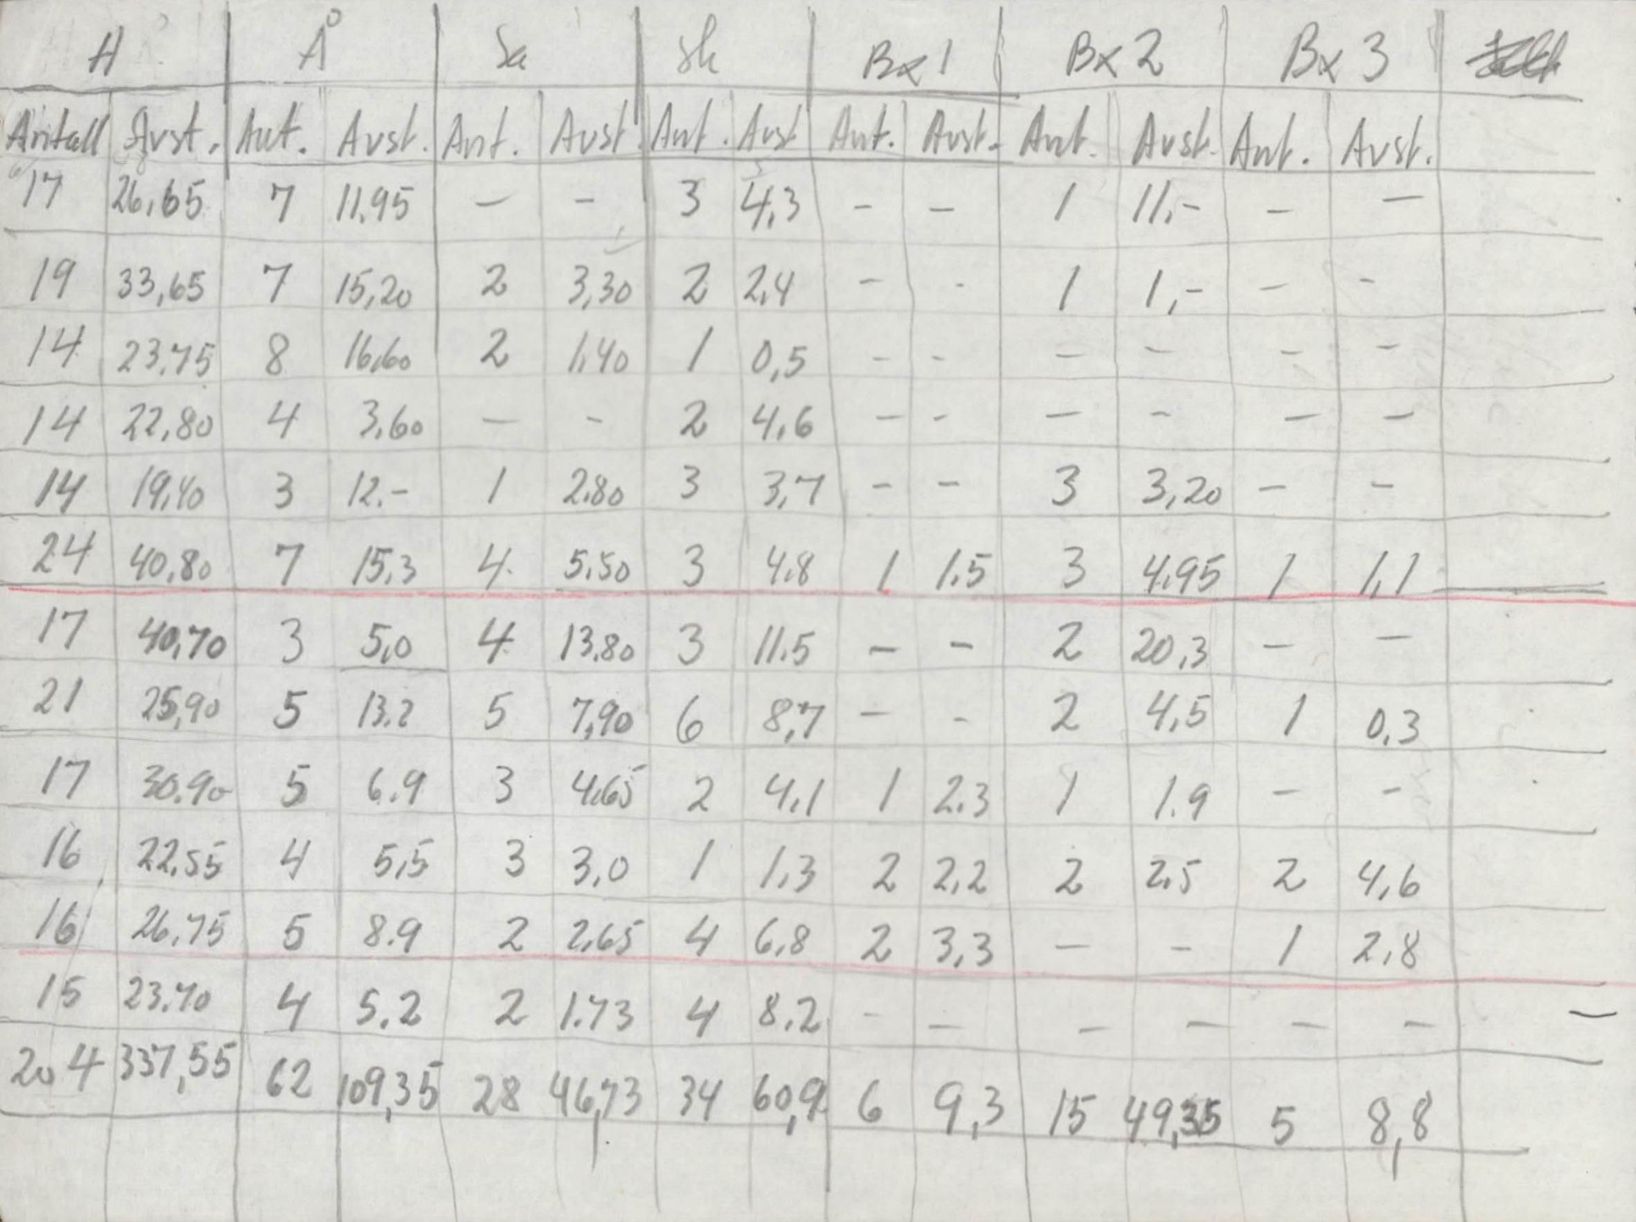 H Å Sa Sk Bx 1 Bx 2 Bx 3
Antall Avst. Ant. Avst. Ant. Avst. Ant. Avst Ant. Avst. Ant. Avst. Ant. Avst.
17 26,65 7 11,95 — - 3 4,3 - — 1 11,- - —
19 33,65 7 15,20 2 3,30 2 2,4 - - 1 1,- - -
14 23,75 8 16,60 2 1,40 1 0,5 - - - - - -
14 22,80 4 3,60 — - 2 4,6 - - — - - -
14 19,40 3 12.- 1 2.80 3 3,7 - - 3 3,20 - -
24 40,80 7 15,3 4 5,50 3 4,8 1 1,5 3 4,95 1 1,1
17 40,70 3 5,0 4 13,80 3 11,5 - - 2 20,3 - -
21 25,90 5 13,2 5 7,90 6 8,7 - - 2 4,5 1 0,3
17 30,90 5 6,9 3 4,65 2 4,1 1 2,3 1 1.9 - -
16 22,55 4 5,5 3 3,0 1 1,3 2 2,2 2 2,5 2 4,6
16 26,75 5 8.9 2 2,65 4 6,8 2 3,3 — - 1 2,8
15 23.70 4 5.2 2 1.73 4 8.2 - — - — - — —
204 337,55 62 109,35 28 46,73 34 60,9 6 9,3 15 49,35 5 8,8